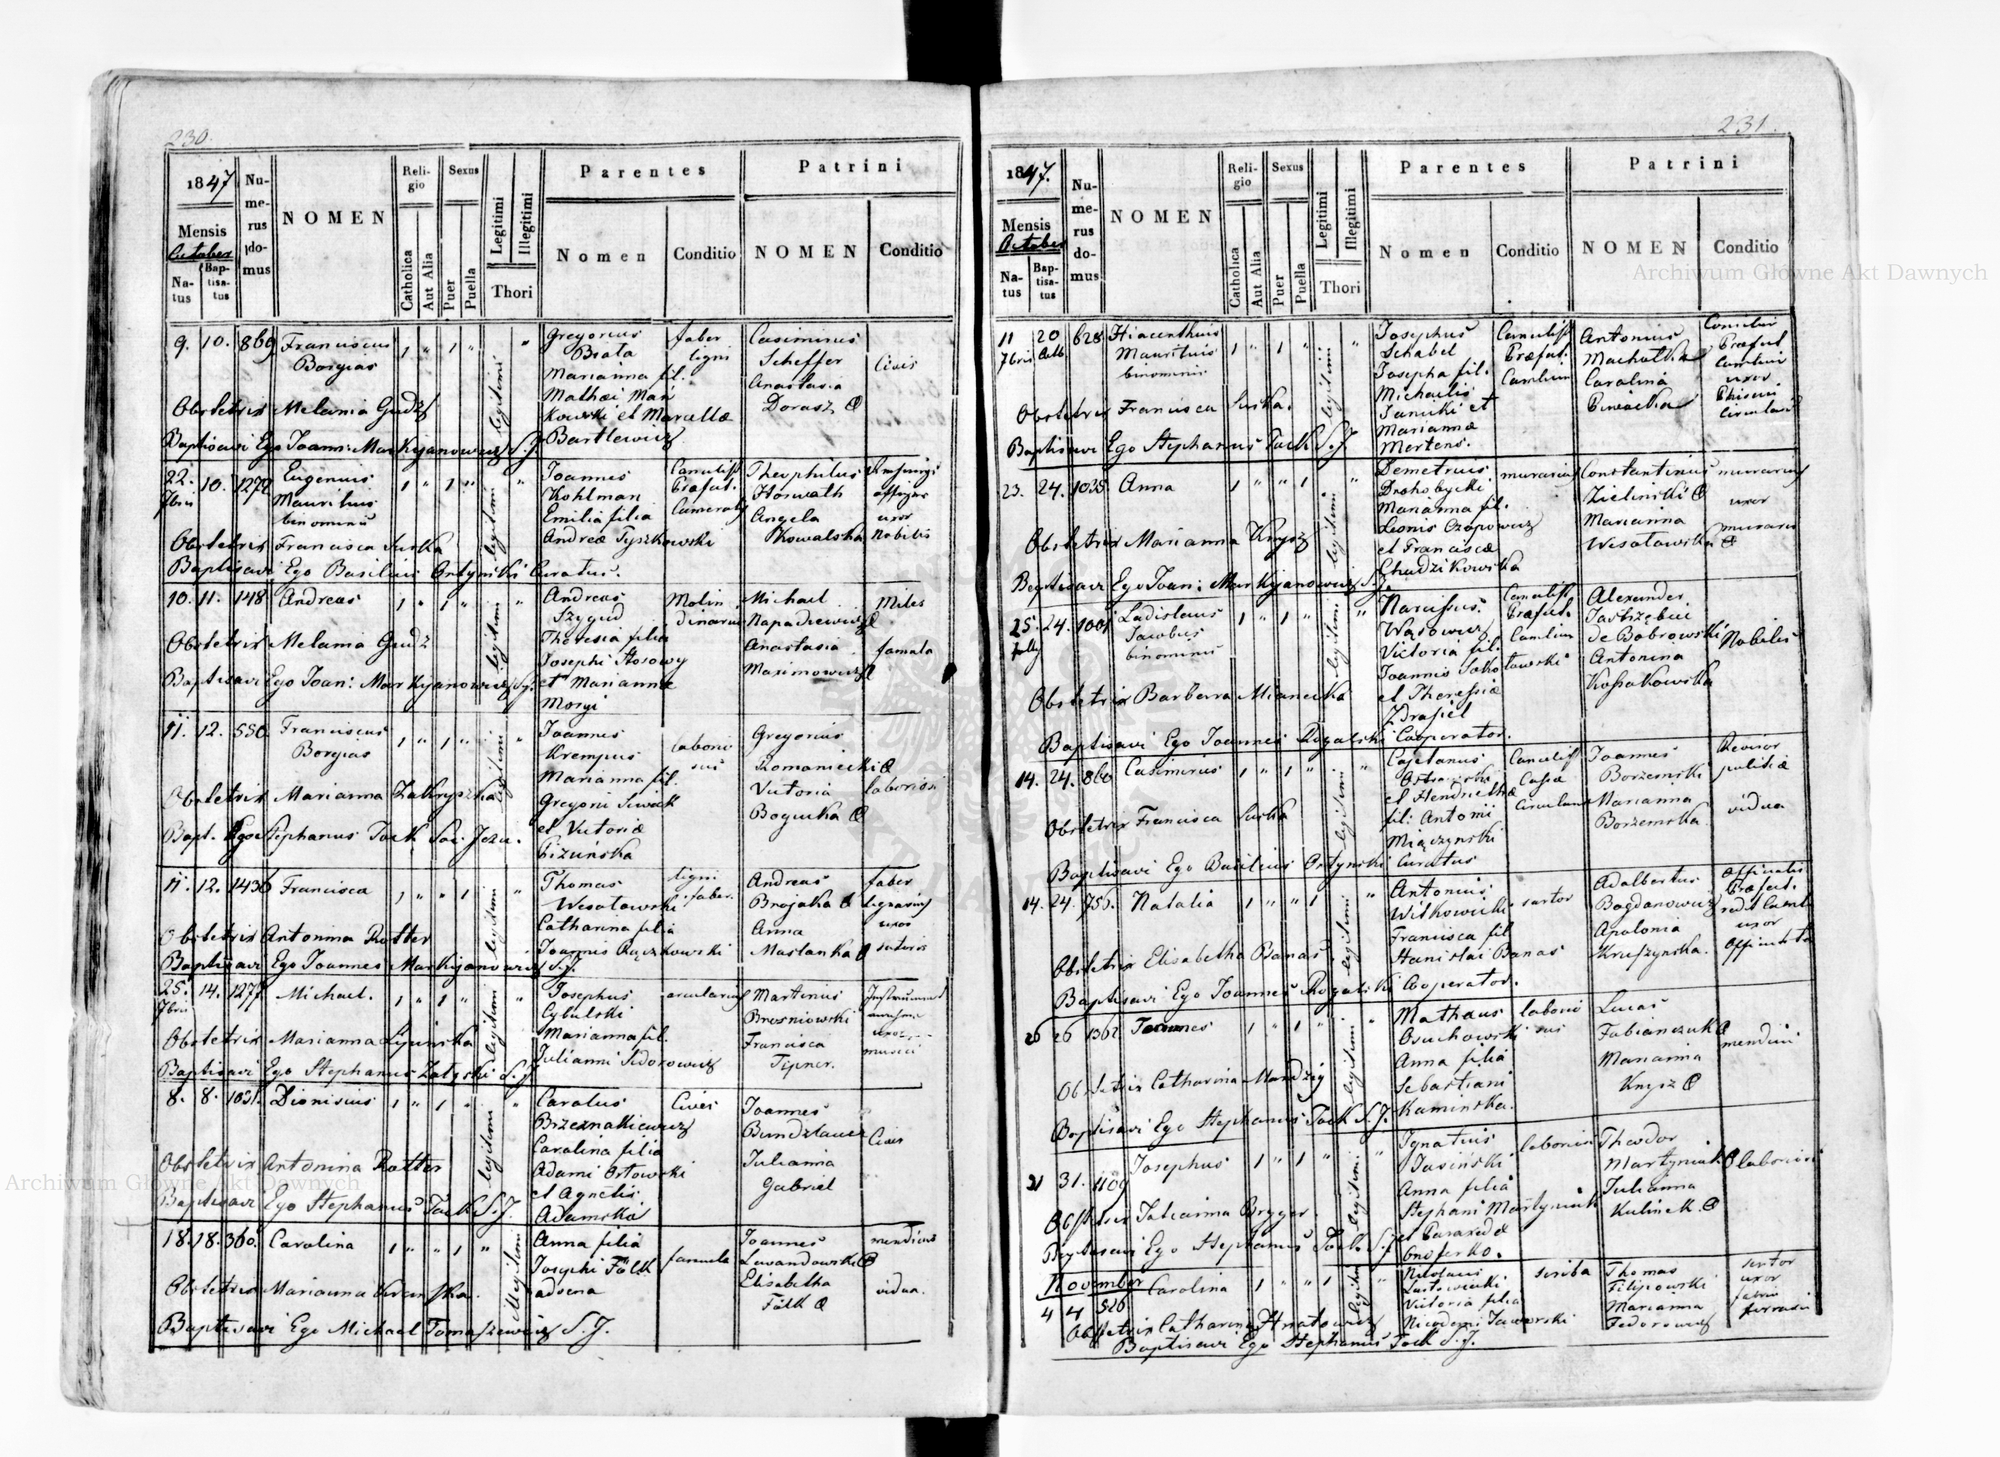 230.
1847
Mensis
October
Natus
Baptisatus
Numerus domus
NOMEN
Religio
Catholica
Aut Alia
Sexus
Puer
Puella
Legitimi
Illegitimi
Thori
Parentes
Nomen
Conditio
Patrini
NOMEN
Conditio
9. 10. 869 Franciscus 1 " 1 " " Gregorius faber Casimirus
Borgias Biata ligni Scheffer Civis
legitimi Marianna fil. Anastasia
Obstetrix Melania Gudz Mathæi Man Dorasz
kowski et Marcellæ
Baptisavi Ego Joann: Markijanowicz S.J. Bartlewicz
22. 10. 1272 Eugenius 1 " 1 " " Joannes Theophilus
7bris Mauritius Kohlman Præfect. Horwath
binominis legitimi Emilia filia Angela uxor
Obstetrix Francisca Surka Andreæ Tyszkowski Kowalska Nobilis
Baptisavi Ego Basilius Ortynski Curatus.
10. 11. 148 Andreas 1 " 1 " " Andreas Molin Michael Miles
Szygud dinarius Napadiewicz
Obstetrix Melania Gudz legitimi Theresia filia Anastasia famula
Josephi Stosowy Maximowicz
Baptisavi Ego Joan: Markijanowicz S.J. et Mariannæ
Mosyi
11. 12. 550 Franciscus 1 " 1 " " Joannes labori Gregorius
Borgias Krempus sus Romaniecki
legitimi Marianna fil. Victoria laboriosi
Obstetrix Marianna Zakryszka Gregorii Siwak Bogucka
et Victoriæ
Bapt. Ego Stephanus Tock Soc. Jesu. Cizuńska
11. 12. 1436 Francisca 1 " " 1 " Thomas ligni Andreas faber
Wesołowski faber. Brojaka lignarius
legitimi Catharina filia Anna uxor
Obstetrix Antonina Rotter Joannis Rączkowski Maslanka sutoris
Baptisavi Ego Joannes Markijanowicz S.J.
25. 14. 1277 Michael. 1 " 1 " " Josephus arcularius Martinus
7bris Cybulski Brosniowski
Obstetrix Marianna legitimi Marianna fil. Francisca uxor
Julianni Sidorowicz Tepner. musici
Baptisavi Ego Stephanus Załęski S.J.
8. 8. 1031. Dionisius 1 " 1 " " Carolus Civis Joannes
Brzeznakiewicz Bundzlauer Civis
legitimi Carolina filia Julianna
Obstetrix Antonina Rotter Adami Ortowski Gabriel
et Agnetis
Baptisavi Ego Stephanus Tock S.J. Adamska
18. 18. 360. Carolina 1 " " 1 " Anna filia famula Joannes mendicus
Josephi Fölk Lewandowski
Obstetrix Marianna illegitimi adsena Elisabetha vidua.
Fölk
Baptisavi Ego Michael Tomaszewicz S.J.
231.
1847.
Mensis
October
Natus
Baptisatus
Numerus domus
NOMEN
Religio
Catholica
Aut Alia
Sexus
Puer
Puella
Legitimi
Illegitimi
Thori
Parentes
Nomen
Conditio
Patrini
NOMEN
Conditio
11 20 628 Hiacenthus 1 " 1 " " Josephus Antonius
7bris Mauritius Schabel Præfect. Machatka Præfect
binominis legitimi Josepha fil. Camerlium Carolina uxor
Obstetrix Francisca Surka. Michaelis
Janicki et
Baptisavi Ego Stephanus Tock S.J. Mariannæ
Mertens.
23. 24. 1035. Anna 1 " " 1 " Demetrius murarius Constantinus murarius
Drohobycki Zieliński
legitimi Marianna fil. Marianna uxor
Obstetrix Marianna Knysz Leonis Czopowicz Wesołowska murarii
et Franciscæ
Baptisavi Ego Joan: Markijanowicz S.J. Chudzikowska
25. 24. 1001 Ladislaus 1 " 1 " " Narcissus Alexander
July Jacobus Wąsowicz Præfect. Jastrzębiec
binominis legitimi Victoria fil. de Bobrowski Nobiles
Joannis Sokołowski Antonina
Obstetrix Barbara Mianecka et Theressiæ Kossakowska
Zdrasiel
Baptisavi Ego Joannes Rogalski Cooperator.
14. 24. 860 Casimirus 1 " 1 " " Cajetanus Joannes Revisor
Cassæ Borzemski politiæ
legitimi et Hendriethæ Circularis Marianna vidua
Obstetrix Francisca Surka fil: Antonii Borzemska.
Miączynski
Baptisavi Ego Basilius Ortynski Curatus
14. 24. 755. Natalia 1 " " 1 " Antonius sartor Adalbertus Officialis
Witkowicki Bogdanowicz Præfect.
legitimi Francisca fil Apolonia uxor
Obstetrix Elisabetha Banas. Stanislai Banas Kruszynska.
Baptisavi Ego Joannes Rogalski Cooperator.
26 26 1362. Joannes 1 " 1 " " Mathæus laborio Lucas
Osuchowski sus Fabianczuk mendici
legitimi Anna filia Marianna
Obstetrix Catharina Mandzij Sebastiani Knysz
Kaminska.
Baptisavi Ego Stephanus Tock S.J.
21 31. 1109 Josephus 1 " 1 " " Ignatius laborius Theodor
Jasiński Martyniak laboriosi
legitimi Anna filia Julianna
Stephani Martyniak Kulinek.
Baptisavi Ego Stephanus Tock S.J. Onoferko.
November
4 4 526 Carolina 1 " " 1 " Nicolaus scriba Thomas sartor
Filipowski uxor
legitimi Victoria filia Marianna fabri
Obstetrix Catharina Hnatowicz Nicodemi Jaworski Fedorowicz ferrarii
Baptisavi Ego Stephanus Tock S.J.
Archiwum Główne Akt Dawnych
Archiwum Główne Akt Dawnych